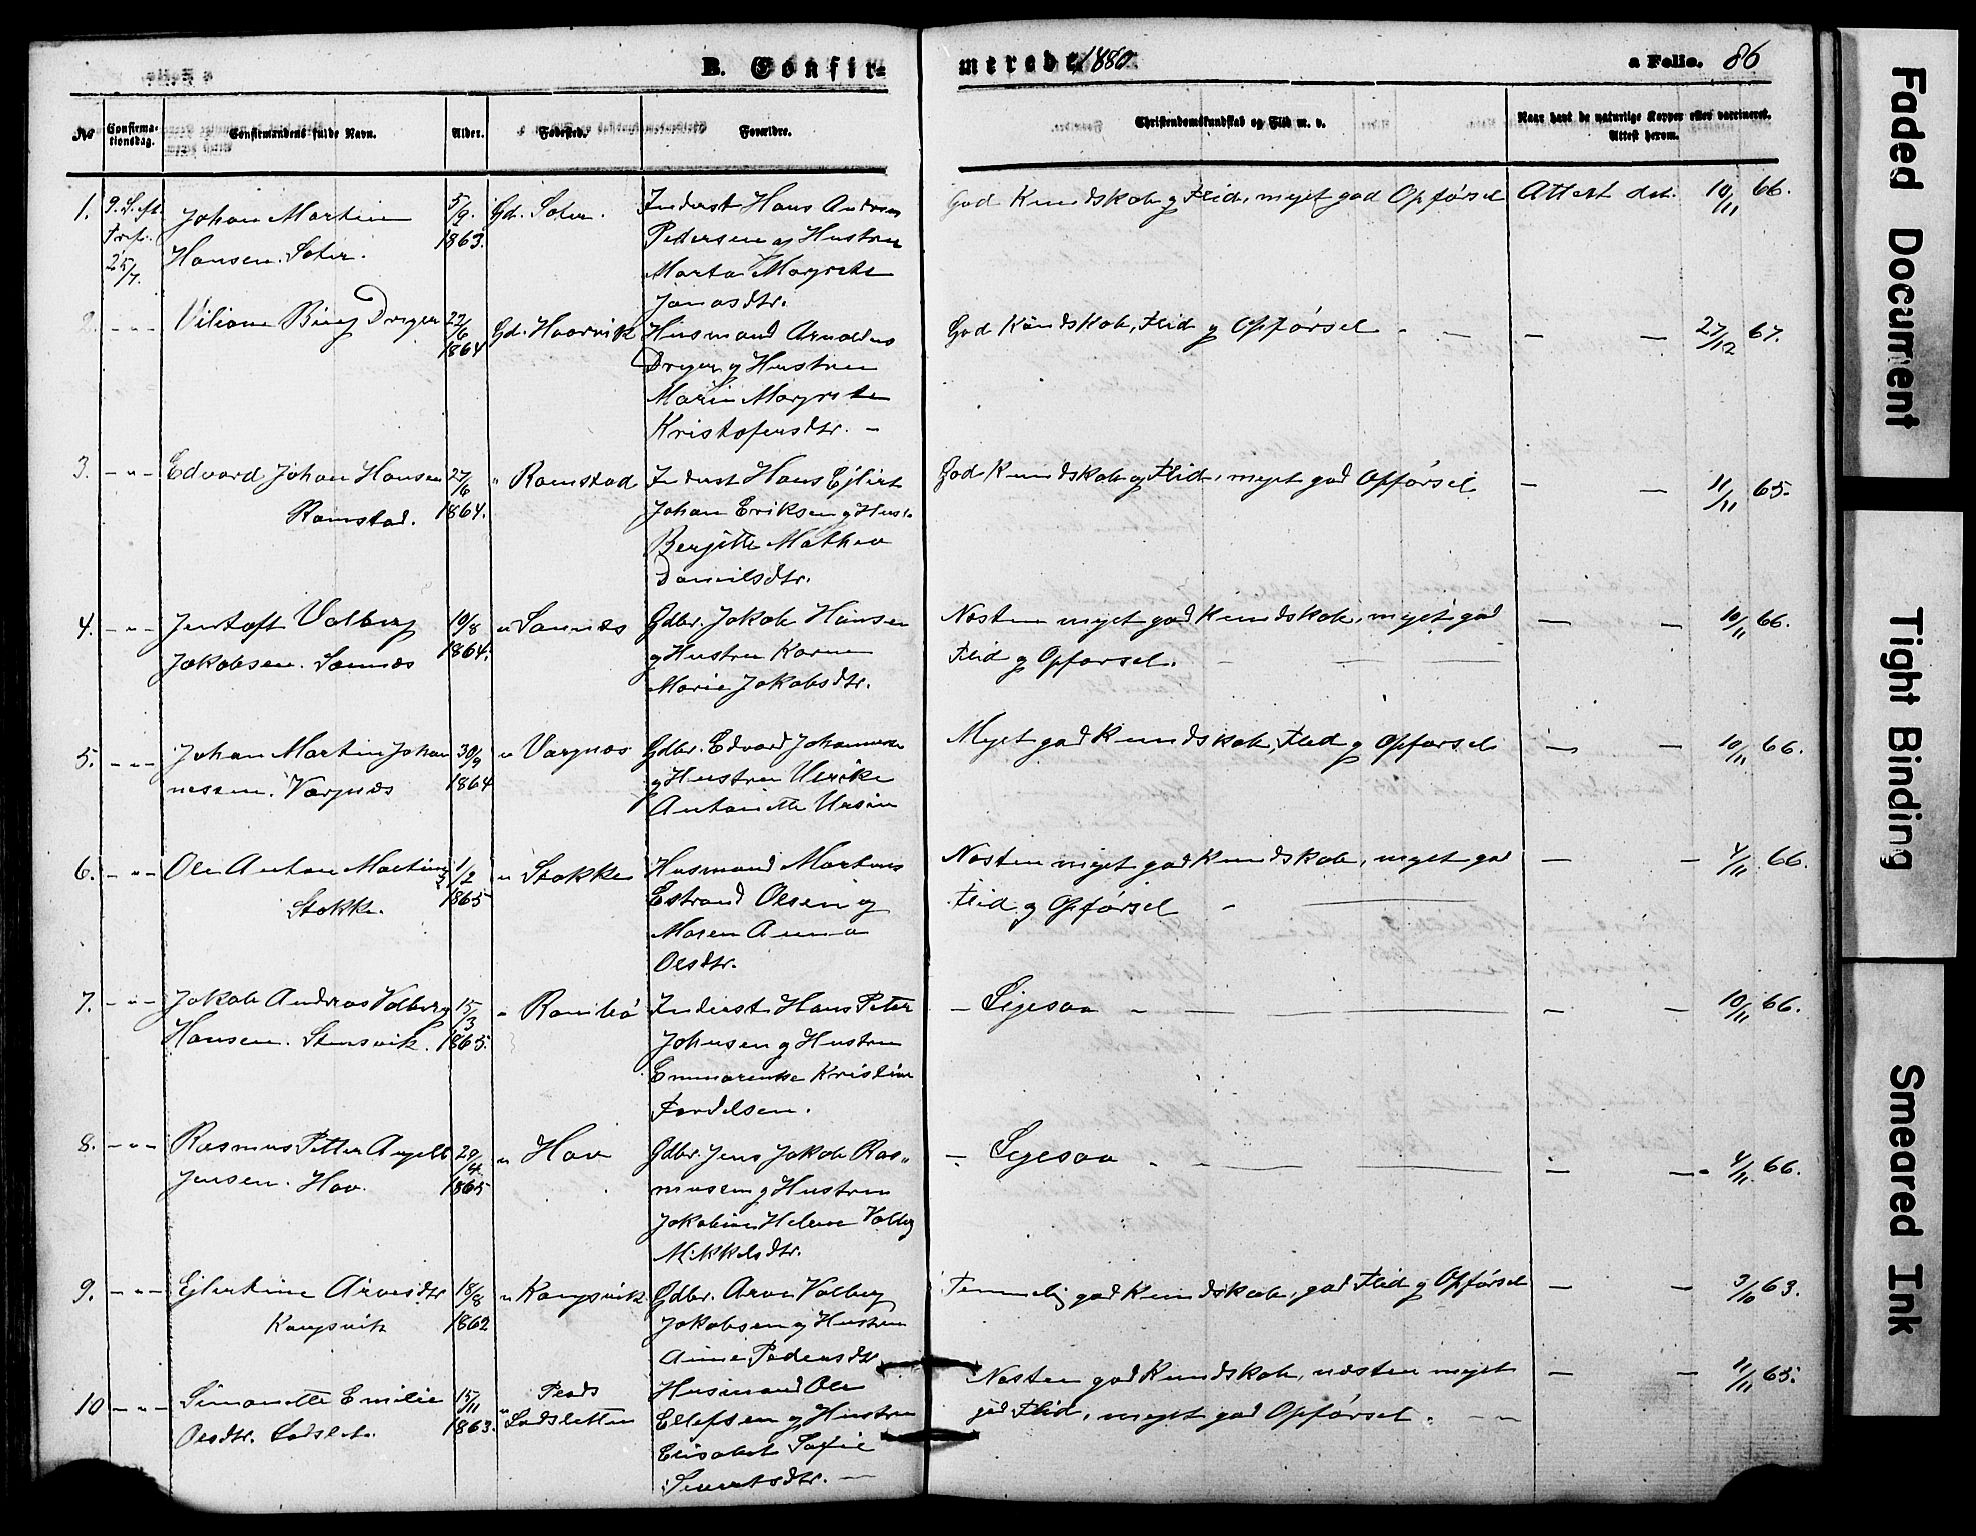 B. Confir-
merede 1880.
a Folio. 86
No
Confirma-
tionsdag.
Confirmandens fulde Navn.
Alder.
Fødested.
Forældre.
Christendomskundskab og Flid m. v.
Naar havt de naturlige Kopper eller vaccineret.
Attest herom.
1.
9. S. eft.
Trefr.
25/7
Johan Martin
Hansen. Soter.
5/9
1863.
Gd. Soter.
Inderst Hans Andreas
Pedersen og Hustru
Marta Margrete
Jonasdtr.
God Kundskab og Flid, meget god Opførsel
Attest dat. 10/11 66.
2. - " -
Viliam Berg Dreyer
22/6
1864
Gd. Haarvik
Husmand Arnoldus
Dreyer og Hustru
Marie Margrete
Kristofersdtr. -
God Kundskab, Flid og Opførsel - -
— — 27/12 67.
3. - " -
Edvard Johan Hansen
Ramstad.
27/6
1864.
" Ramstad
Inderst Hans Ejlert
Johan Eriksen og Hust.
Bergitte Mathea
Danielsdtr.
God Kundskab og Flid, meget god Opførsel
— — 11/11 65.
4. - " -
Jentoft Volberg
Jakobsen. Sannæs
19/8
1864.
" Sannæs
Gdbr. Jakob Hansen
og Hustru Karen
Marie Jakobsdtr.
Næsten meget god Kundskab, meget god
Flid og Opførsel. - — —
— — 10/11 66.
5. - " -
Johan Martin Johan
nessen. Vargnæs
30/9
1864
" Vargnæs
Gdbr. Edvard Johannesen
og Hustru Ulrike
Antonette Ursin
Meget god Kundskab, Flid og Opførsel
— — 10/11 66.
6. - " -
Ole Anton Martins
Stokke.
1/2
1865
" Stokke
Husmand Martens
Estrand Olsen og
Maren Anna
Olsdtr.
Næsten meget god Kundskab, meget god
Flid og Opførsel - —
— — 4/11 66.
7. - " -
Jakob Andreas Volberg
Hansen. Stensvik.
15/3
1865.
" Ramsbø
Inderst Hans Peter
Johnsen og Hustru
Emmarense Kristine
Fordelsen.
- Ligesaa - - — —
— — 10/11 66.
8. - " -
Rasmus Petter Angell
Jensen. Hov.
29/4
1865
" Hov
Gdbr. Jens Jakob Ras-
mussen og Hustru
Jakobine Helene Volberg
Mikkelsdtr.
- Ligesaa - - — —
— — 4/11 66.
9. - " -
Ejlertine Arvesdtr
Kongsvik
18/8
1862
" Kongsvik
Gdbr. Arve Volberg
Jakobsen og Hustru
Anne Pedersdtr
Temmelig god Kundskab, god Flid og Opførsel
— — 3/10 63.
10 - " -
Simonette Emilie
Olsdtr. Sadslet.
15/11
1863.
Plads
" Sadsletten
Husmand Ole
Ellefsen og Hustru
Elisabet Sofie
Sivertsdtr. —
Næsten god Kundskab, næsten meget
god Flid, meget god Opførsel. - -
— — 11/11 65.
Faded Document
Tight Binding
Smeared Ink